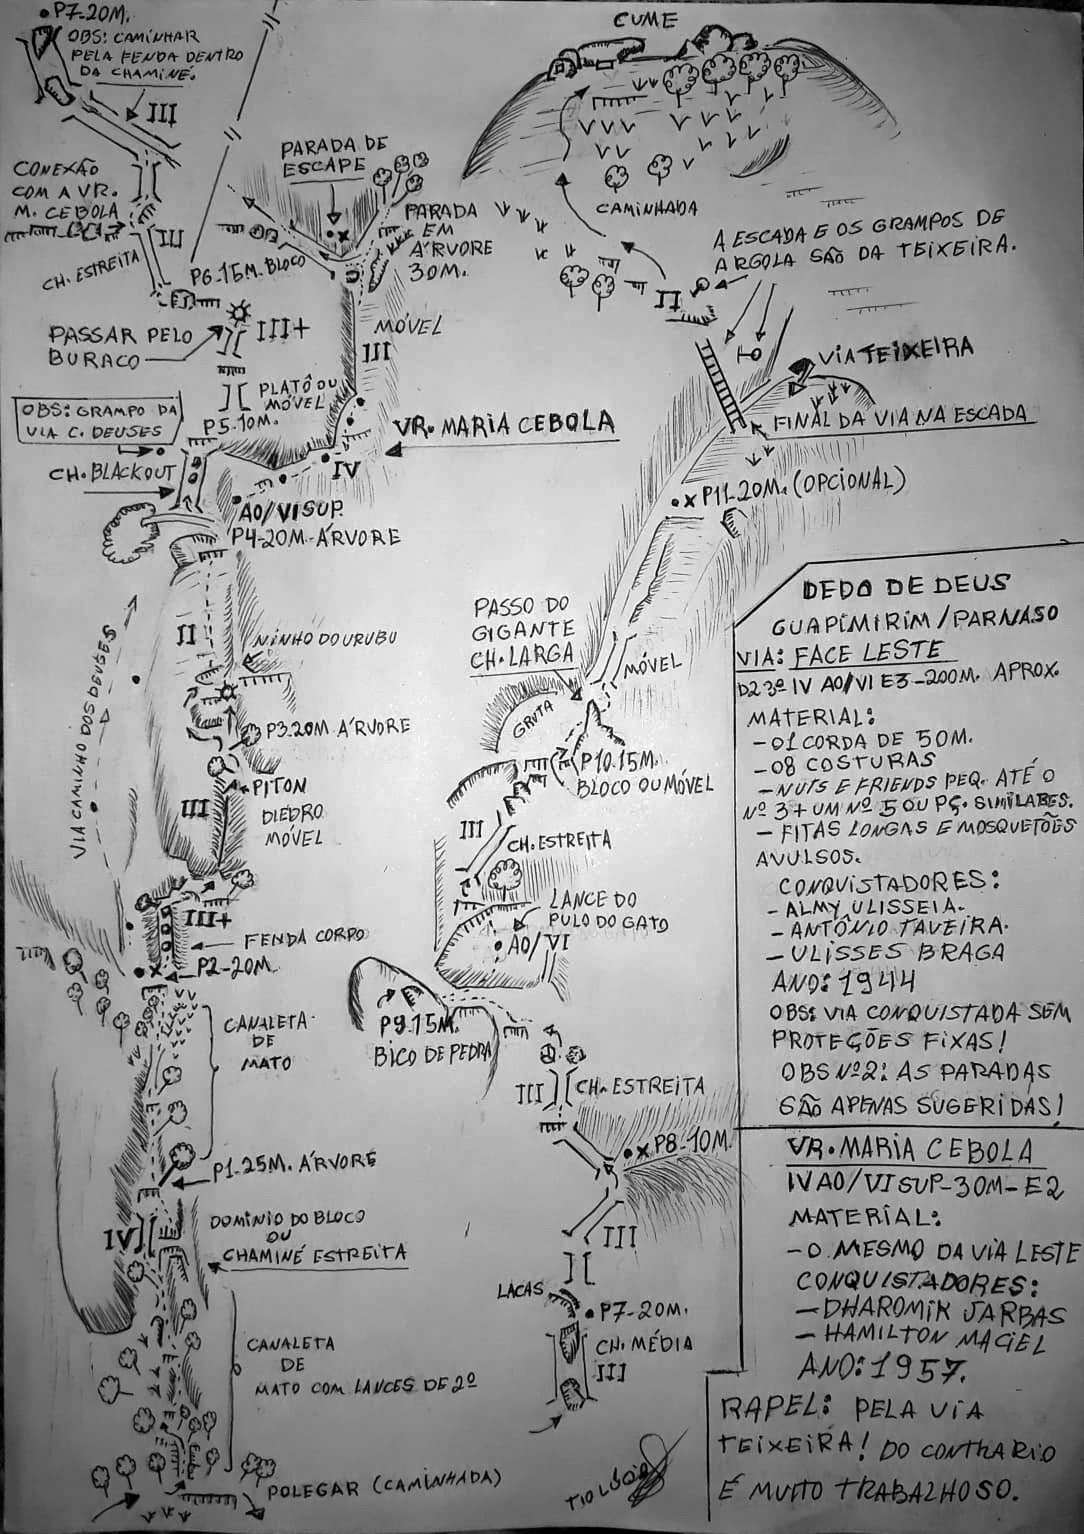 P7-20M.
OBS: CAMINHAR
PELA FENDA DENTRO
DA CHAMINÉ.
III
CONEXÃO
COM A VR.
M. CEBOLA
III
CH. ESTREITA
P6-15M. BLOCO
PARADA DE
ESCAPE
PARADA
EM
ÁRVORE
30M.
PASSAR PELO
BURACO
III+
MÓVEL
III
PLATÔ OU
MÓVEL
P5-10M.
OBS: GRAMPO DA
VIA C. DEUSES
CH. BLACKOUT
VR. MARIA CEBOLA
IV
A0/VI SUP.
P4-20M-ÁRVORE
II
NINHO DO URUBU
VIA CAMINHO DOS DEUSES
P3-20M ÁRVORE
PITON
III
DIEDRO
MÓVEL
III+
FENDA CORPO
P2-20M.
CANALETA
DE
MATO
P1-25M. ÁRVORE
IV
DOMINIO DO BLOCO
OU
CHAMINÉ ESTREITA
CANALETA
DE
MATO COM LANCES DE 2º
POLEGAR (CAMINHADA)
CUME
CAMINHADA
A ESCADA E OS GRAMPOS DE
ARGOLA SÃO DA TEIXEIRA.
II
VIA TEIXEIRA
FINAL DA VIA NA ESCADA
P11-20M. (OPCIONAL)
PASSO DO
GIGANTE
CH. LARGA
MÓVEL
GRUTA
P10-15M.
BLOCO OU MÓVEL
III
CH. ESTREITA
LANCE DO
PULO DO GATO
A0/VI
P9-15M.
BICO DE PEDRA
III
CH. ESTREITA
P8-10M.
III
LACAS
P7-20M.
CH. MÉDIA
III
DEDO DE DEUS
GUAPIMIRIM/PARNASO
VIA: FACE LESTE
D2 3º IV A0/VI E3-200M. APROX.
MATERIAL:
-01 CORDA DE 50M.
-08 COSTURAS
-NUTS E FRIENDS PEQ. ATÉ O
Nº 3 + UM Nº 5 OU PÇ. SIMILARES.
- FITAS LONGAS E MOSQUETÕES
AVULSOS.
CONQUISTADORES:
- ALMY ULISSEIA.
- ANTÔNIO TAVEIRA.
- ULISSES BRAGA
ANO: 1944
OBS: VIA CONQUISTADA SEM
PROTEÇÕES FIXAS!
OBS Nº2: AS PARADAS
SÃO APENAS SUGERIDAS!
VR. MARIA CEBOLA
IV A0/VI SUP-30M-E2
MATERIAL:
- O MESMO DA VIA LESTE
CONQUISTADORES:
- DHAROMIK JARBAS
- HAMILTON MACIEL
ANO: 1957.
RAPEL: PELA VIA
TEIXEIRA! DO CONTRARIO
É MUITO TRABALHOSO.